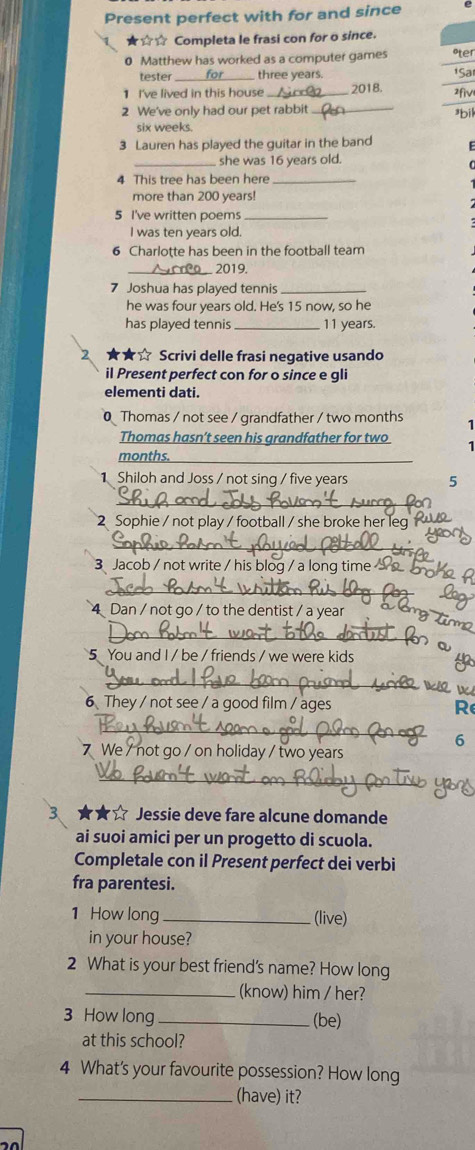 Present perfect with for and since
1 ★☆☆ Completa le frasi con for o since.
0 Matthew has worked as a computer games
tester for three years.
1 I've lived in this house since 2018.
2 We've only had our pet rabbit for
six weeks.
3 Lauren has played the guitar in the band
she was 16 years old.
4 This tree has been here
more than 200 years!
5 I've written poems
I was ten years old.
6 Charlotte has been in the football team
since 2019.
7 Joshua has played tennis
he was four years old. He's 15 now, so he
has played tennis 11 years.
2 ★★☆ Scrivi delle frasi negative usando
il Present perfect con for o since e gli
elementi dati.
0 Thomas / not see / grandfather / two months
Thomas hasn't seen his grandfather for two
months.
1 Shiloh and Joss / not sing / five years
and Joss haven't sung for
five years
2 Sophie / not play / football / she broke her leg
Sophie hasn't played since
she broke
leg
3 Jacob / not write / his blog / a long time
Jacob hasn't written his blog for
a long time
4 Dan / not go / to the dentist / a year
Dan hasn't went to the dentist for a
5 You and I / be / friends / we were kids
You and I have been friend since we
6 They / not see / a good film / ages
They haven't seen a good for age
7 We / not go / on holiday / two years
We haven't went on holiday for two years
3 ★★☆ Jessie deve fare alcune domande
ai suoi amici per un progetto di scuola.
Completale con il Present perfect dei verbi
fra parentesi.
1 How long (live)
in your house?
2 What is your best friend's name? How long
(know) him / her?
3 How long (be)
at this school?
4 What's your favourite possession? How long
(have) it?
20
e
0ter
1Sa
2fiv
3bik
1
1
5
Re
6